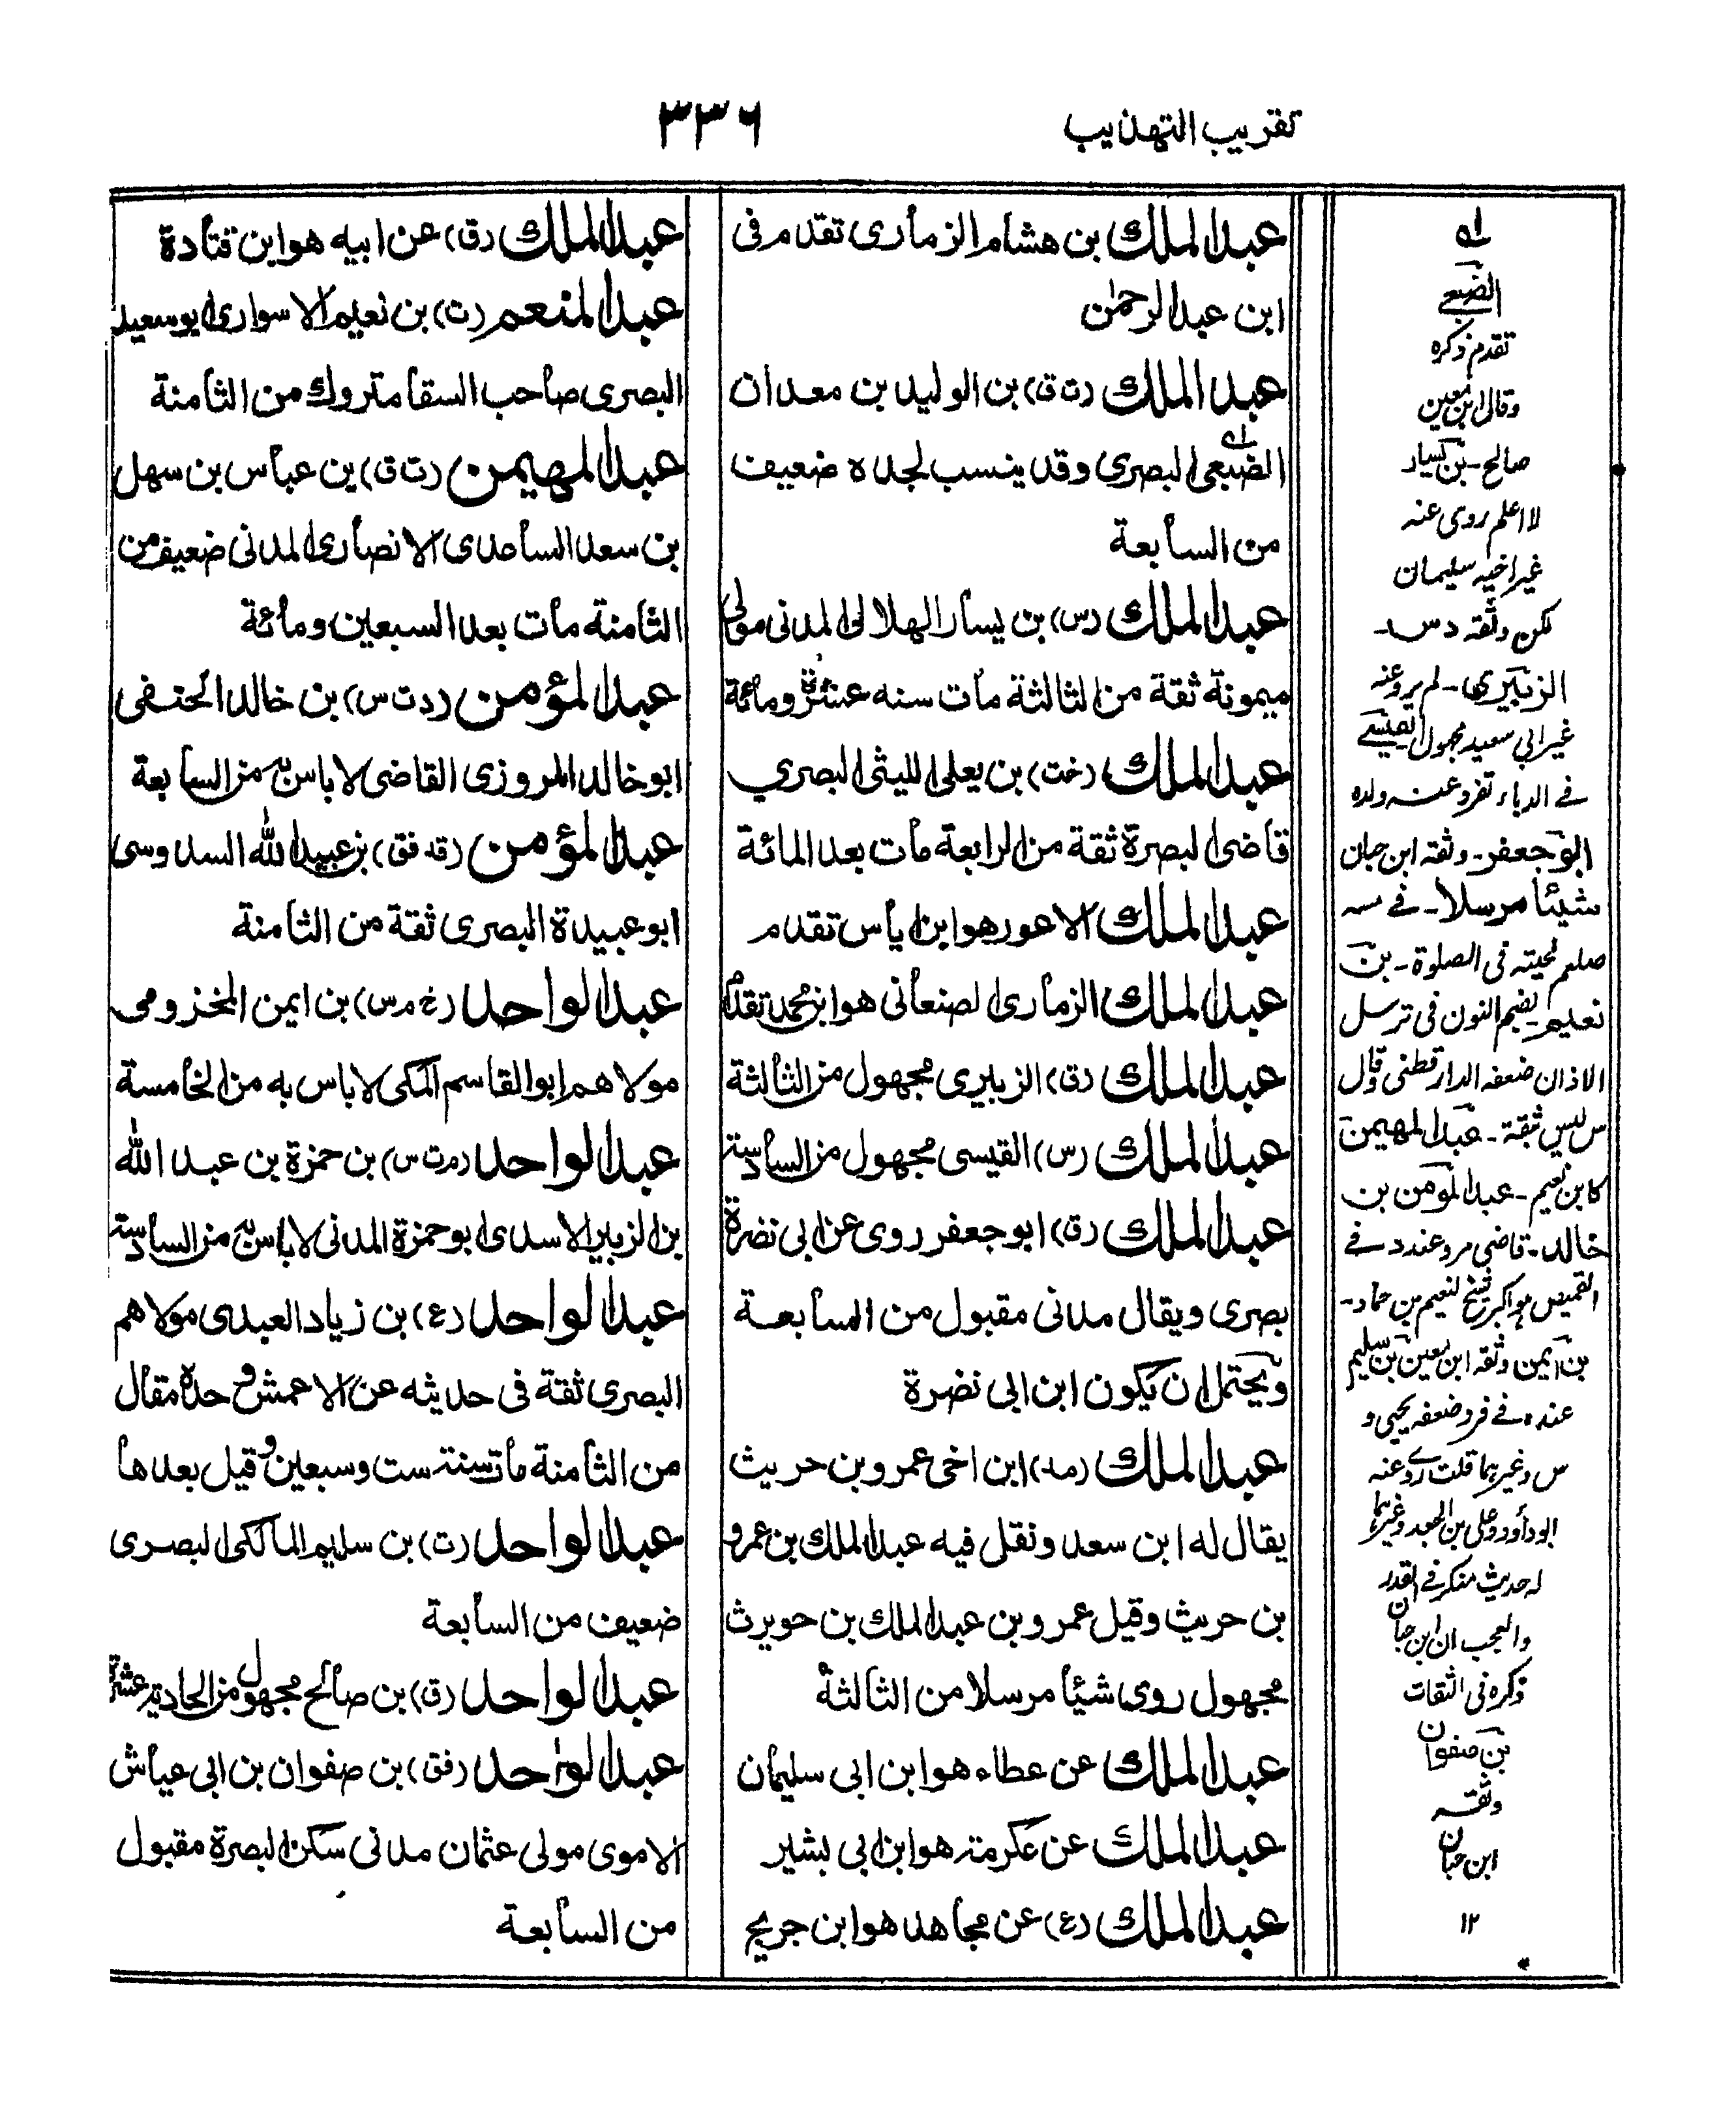 تقريب التهذيب
٣٣٦
عبد الملك بن هشام الزمارى تقدم فى
ابن عبد الرحمٰن
عبد الملك (ت ق) بن الوليد بن معدان
الضبعى البصرى وقد ينسب لجده ضعيف
من السابعة
عبد الملك (س) بن يسار الهلالى المدنى مولى
ميمونة ثقة من الثالثة مات سنه عشرة ومائة
عبد الملك (خت) بن يعلى الليثى البصري
قاضى البصرة ثقة من الرابعة مات بعد المائة
عبد الملك الاعور هو ابن اياس تقدم
عبد الملك الزمارى الصنعانى هو ابن محمد تقدم
عبد الملك (ق) الزبيرى مجهول من الثالثة
عبد الملك (س) القيسى مجهول من السادسة
عبد الملك (ق) ابو جعفر روى عن ابى نضرة
بصرى ويقال مدنى مقبول من السابعة
ويحتمل ان يكون ابن ابى نضرة
عبد الملك (مد) ابن اخى عمرو بن حريث
يقال له ابن سعد ونقل فيه عبد الملك بن عمرو
بن حريث وقيل عمرو بن عبد الملك بن حويرث
مجهول روى شيئا مرسلا من الثالثة
عبد الملك عن عطاء هو ابن ابى سليمان
عبد الملك عن عكرمة هو ابن ابى بشير
عبد الملك (ع) عن مجاهد هو ابن جريج
عبد الملك (ق) عن ابيه هو ابن قتادة
عبد المنعم (ت) بن نعيم الاسوارى ابو سعيد
البصرى صاحب السقا متروك من الثامنة
عبد المهيمن (ت ق) بن عباس بن سهل
بن سعد الساعدى الانصارى المدنى ضعيف من
الثامنة مات بعد السبعين ومائة
عبد المؤمن (د ت س) بن خالد الحنفى
ابو خالد المروزى القاضى لا باس به من السابعة
عبد المؤمن (قد فق) بن عبيد الله السدوسى
ابو عبيدة البصرى ثقة من الثامنة
عبد الواحد (خ م س) بن ايمن المخزومى
مولاهم ابو القاسم المكى لا باس به من الخامسة
عبد الواحد (م ت س) بن حمزة بن عبد الله
بن الزبير الاسدى ابو حمزة المدنى لا باس به من السادسة
عبد الواحد (ع) بن زياد العبدى مولاهم
البصرى ثقة فى حديثه عن الاعمش وحده مقال
من الثامنة مات سنة ست وسبعين وقيل بعدها
عبد الواحد (ت) بن سليم المالكى البصرى
ضعيف من السابعة
عبد الواحد (ق) بن صالح مجهول من الحادية عشرة
عبد الواحد (فق) بن صفوان بن ابى عياش
الاموى مولى عثمان مدنى سكن البصرة مقبول
من السابعة
الضبعے
تقدم ذكره
وقال ابن معين
صالح - بن يسار
لا اعلم روى عنه
غير اخيه سليمان
لكن وثقه د س -
الزبيرى - لم يرو عنه
غير ابي سعيد مجهول القيسے
فے الدباء تفرد عنه ولده
ابو جعفر - وثقه ابن حبان
شيئا مرسلا - فے
لحيته فى الصلوة - بن
نعيم - بضم النون فى ترسل
الاذان ضعفه الدارقطنى وقال
س ليس ثقة - عبد المهيمن
كابن نعيم - عبد المؤمن بن
خالد - قاضى مرو عند د فے
القميص هو اكبر شيخ لنعيم بن حماد -
بن ايمن وثقه ابن معين بن سليم
عنده فے فرد ضعفه يحيى و
س وغيرهما قلت روى عنه
ابو دأود وعلى بن الجعد وغيرهما
له حديث منكر فے القدر
والعجب ان ابن حبان
ذكره فى الثقات
بن صفوان
وثقه
ابن حبان
١٢